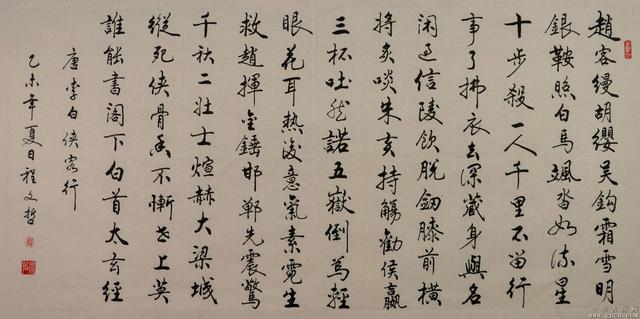 趙客縵胡纓吳鉤霜雪明
銀鞍照白馬颯沓如流星
十步殺一人千里不留行
事了拂衣去深藏身與名
閑過信陵飲脫劍膝前橫
將炙啖朱亥持觴勸侯嬴
三杯吐然諾五嶽倒為輕
眼花耳熱後意氣素霓生
救趙揮金錘邯鄲先震驚
千秋二壯士煊赫大梁城
縱死俠骨香不慚世上英
誰能書閣下白首太玄經
唐李白俠客行
乙未年夏日程文哲